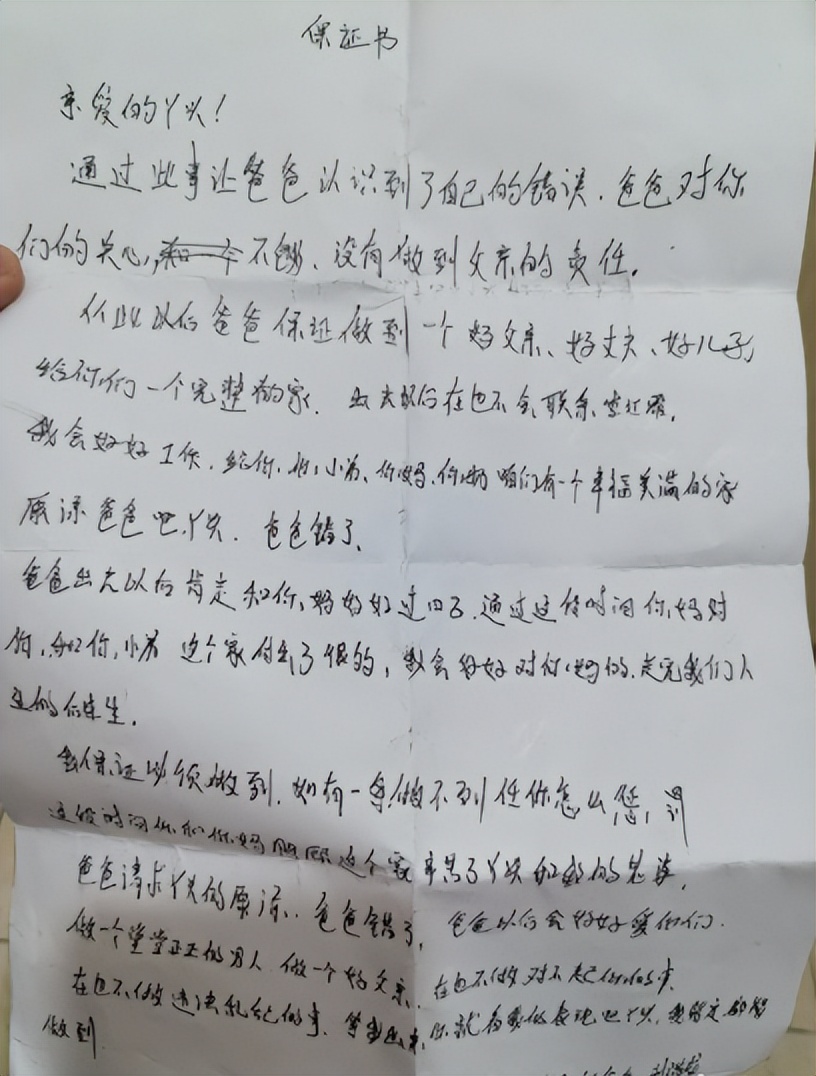 保证书
亲爱的丫头！
通过此事让爸爸认识到了自己的错误．爸爸对你
们的关心，不够、没有做到父亲的责任．
从此以后爸爸保证做到一个好父亲、好丈夫、好儿子，
给你们一个完整的家．出去以后在也不会联系
我会好好工作．给你、你小弟、你妈、你奶咱们有一个幸福美满的家
原谅爸爸吧，丫头．爸爸错了、
爸爸出去以后肯定和你妈好好过日子．通过这段时间你妈对
你，和你小弟这个家付出了很的，我会好好对你妈的．走完我们人
生的后半生．
我保证必须做到．如有一条做不到任你怎么惩罚
这段时间你和你妈照顾这个家辛苦了丫头
爸爸请求丫头的原谅．爸爸错了，爸爸以后会好好爱你们．
做一个堂堂正正的男人．做一个好父亲．在也不做对不起你们的事．
在也不做违法乱纪的事．等我出来，你就看我的表现吧丫头．我肯定都能
做到